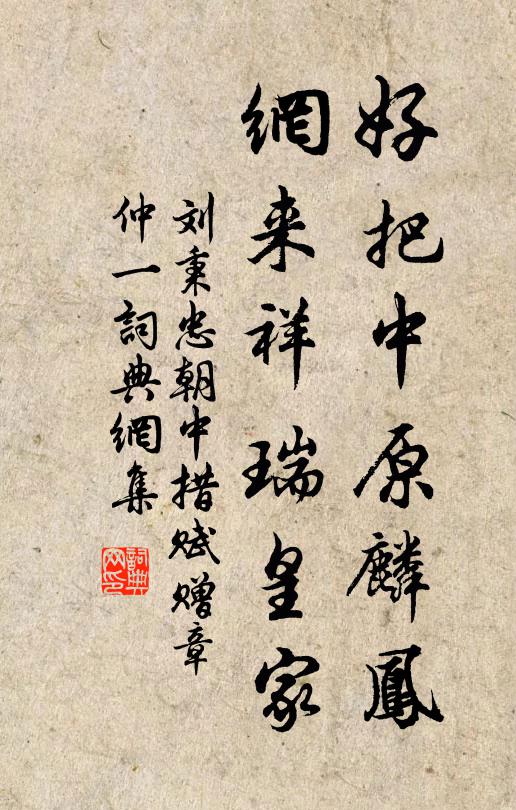 好把中原麟鳳
網来祥瑞皇家
刘秉忠朝中措赋赠章
仲一詞典網集
詞典网印